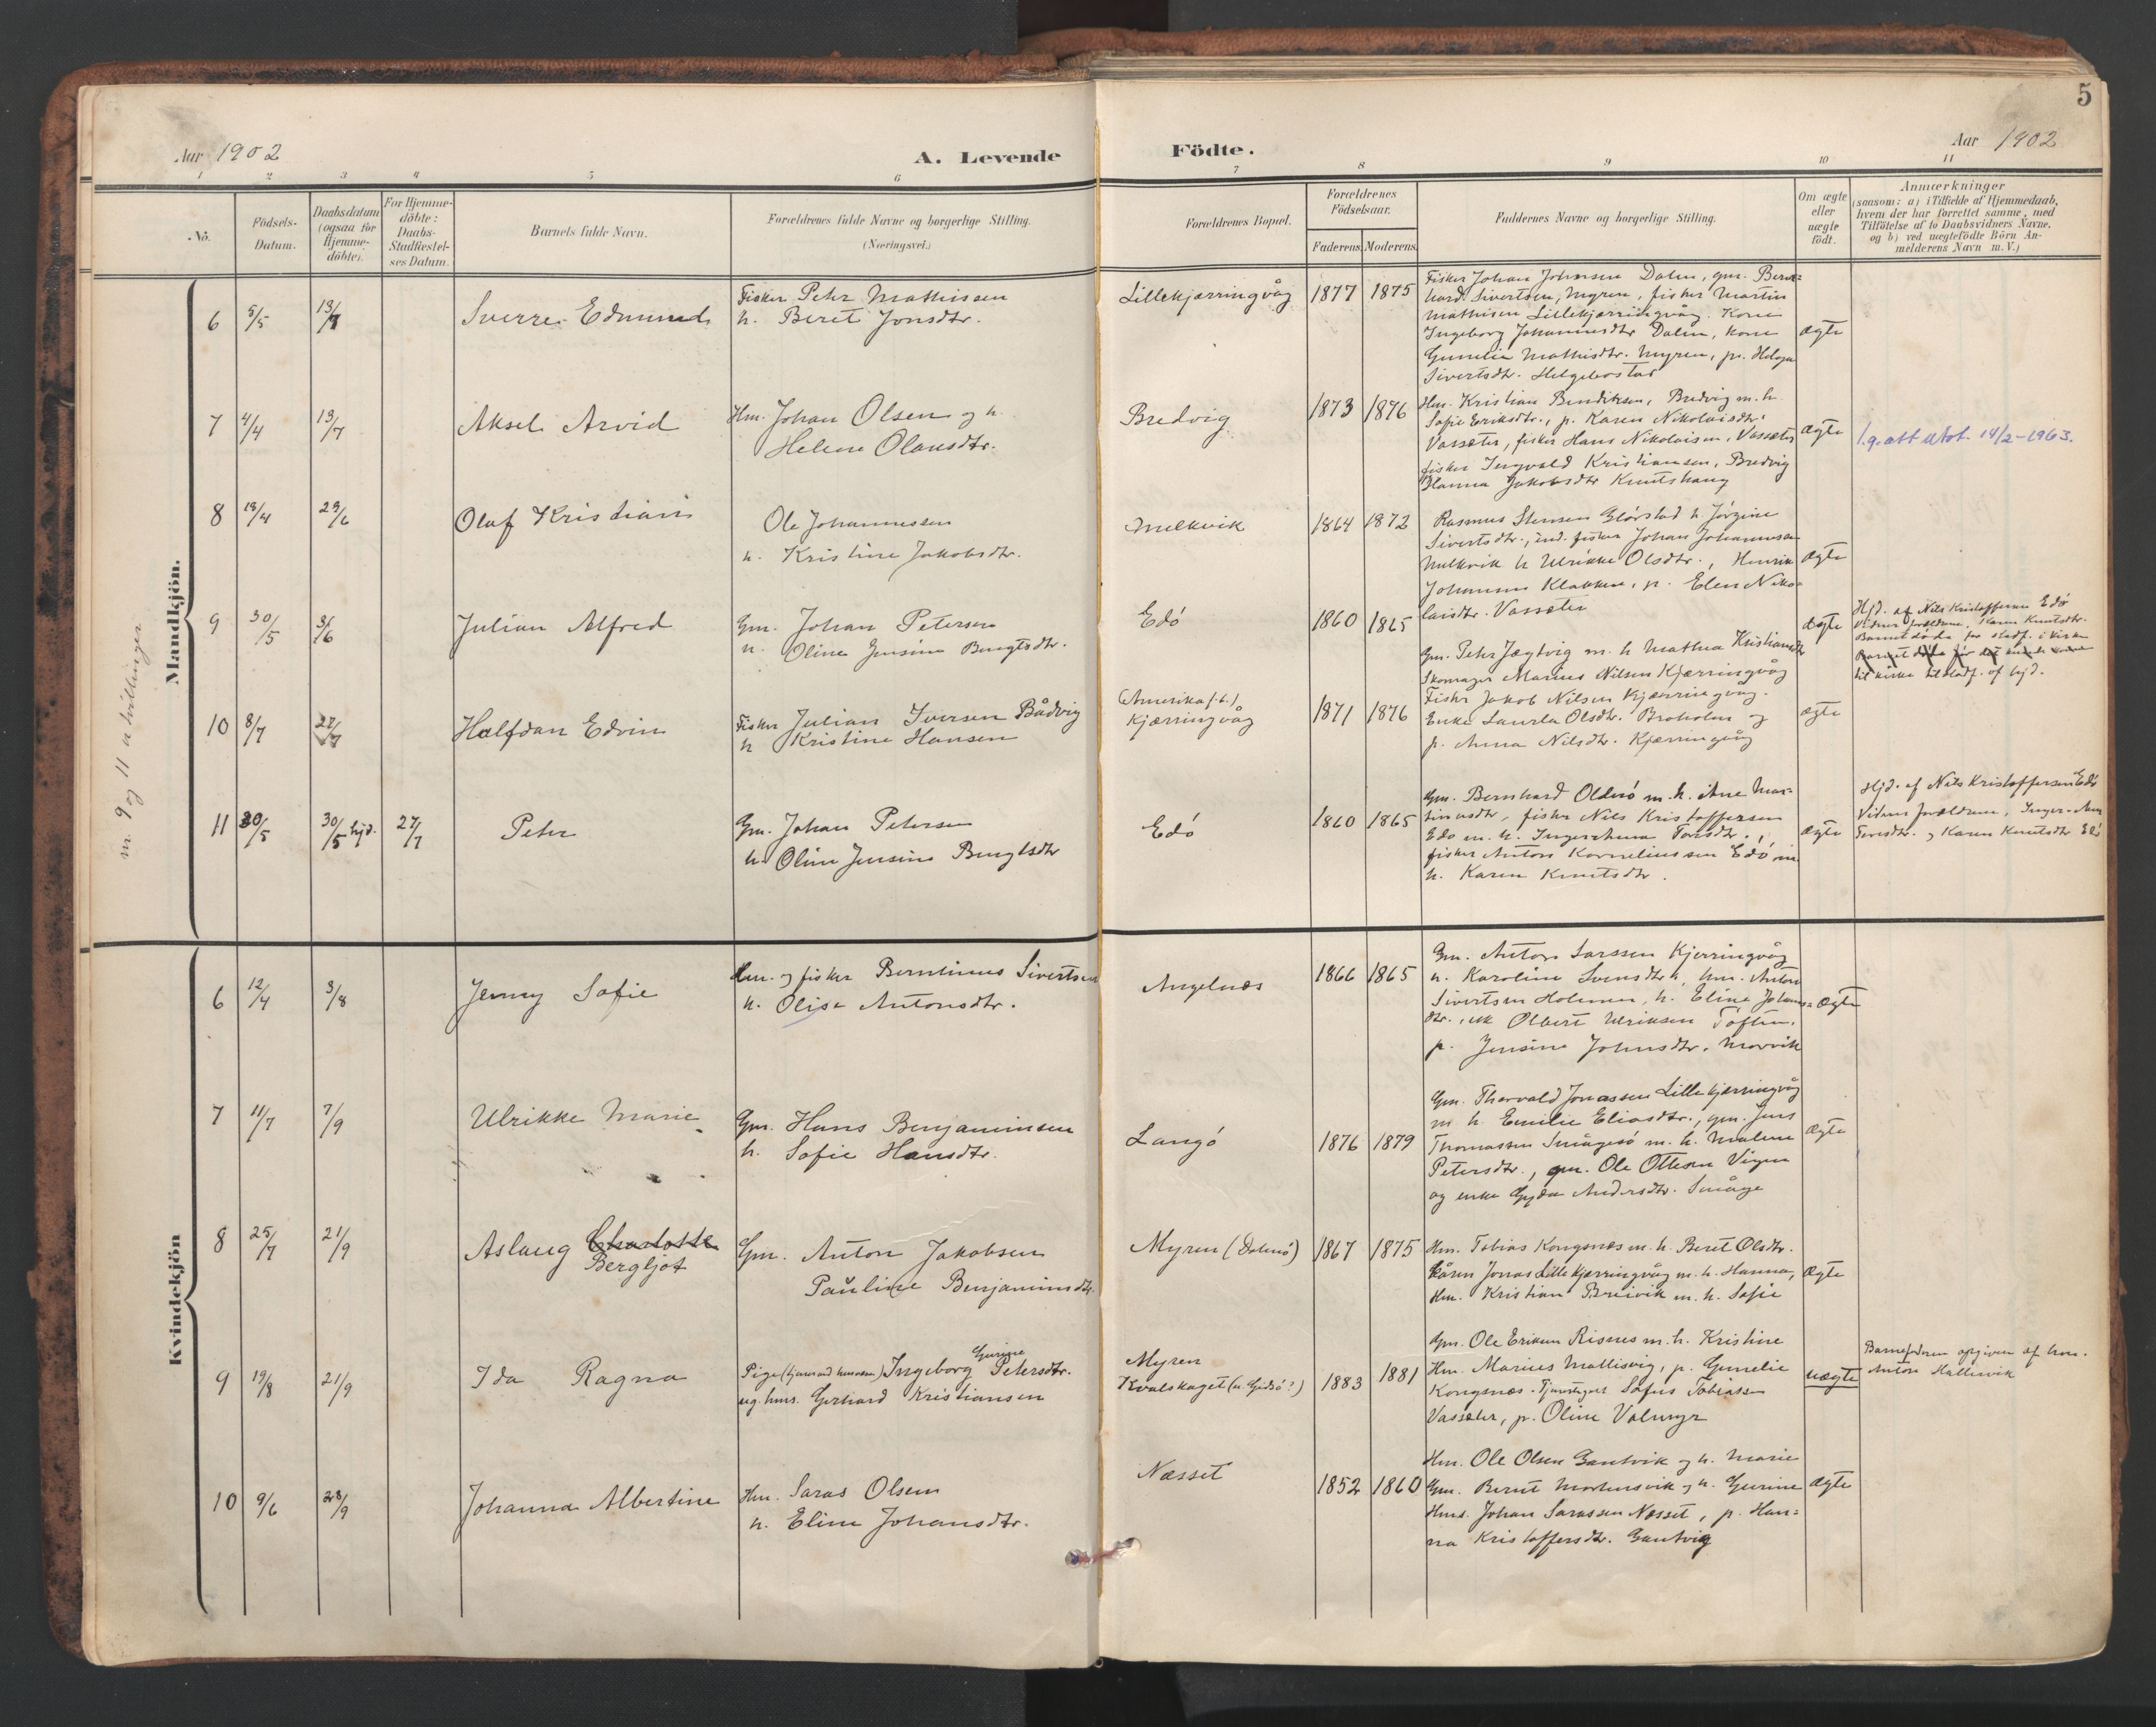 5
Aar 1902
A. Levende
Födte.
Aar 1902
1 2 3 4 5 6 7 8 9 10 11
No.
Födsels-
Datum.
Daabsdatum
(ogsaa for
Hjemme-
döbte).
For Hjemme-
döbte:
Daabs-
Stadfæstel-
ses Datum.
Barnets fulde Navn.
Forældrenes fulde Navne og borgerlige Stilling.
(Næringsvei.)
Forældrenes Bopæl.
Forældrenes
Födselsaar.
Faderens.
Moderens.
Faddernes Navne og borgerlige Stilling.
Om ægte
eller
uægte
födt.
Anmærkninger
(saasom: a) i Tilfælde af Hjemmedaab,
hvem der har forrettet samme, med
Tilföielse af to Daabsvidners Navne,
og b) ved uægtefödte Börn An-
melderens Navn m. V.)
Mandkjön.
nr. 9 og 11 er tvillinger
6 5/5 13/7 Sverre Edmund
Fisker Peter Mathissen
h. Beret Jonsdtr.
Lillekjærringvåg 1877 1875
Fisker Johan Johnsen Dalen, gm. Bern-
hard Sivertsen, Myren, fisker Martin
Mathisen Lillekjærringvåg. Kone
Ingeborg Johannesdtr Dalen, kone
Gunelie Mathisdtr. Myren, p. Helga
Sivertsdtr. Helgebostad
ægte
7 4/4 13/7 Aksel Arvid
Hm. Johan Olsen og h.
Helene Olausdtr.
Bredvig 1873 1876
Hm. Kristian Bendiksen, Bredvig m. h.
Sofie Eriksdtr., p. Karen Nikolaisdtr.
Vassæter, fisker Hans Nikolaisen, Vassæter
fisker Ingvald Kristiansen, Bredvig
Hanna Jakobsdtr Knutshaug
ægte
l.g. att utst. 14/2-1963.
8 13/4 29/6 Olaf Kristian
Ole Johannessen
h. Kristine Jakobsdtr.
Melkvik 1864 1872
Rasmus Stensen Glörstad h. Jörgine
Sivertsdtr., ind. fisker Johan Johannesen
Melkvik h Ulrikke Olsdtr., Henrik
Johansen Klakken, p. Elen Niko-
laisdtr. Vassæter
ægte
9 30/5 3/6 Julian Alfred
Gm. Johan Petersen
h. Oline Jensine Bengtsdtr.
Edö 1860 1865
Gm. Peter Jægtvig m. h Mathea Kristiansdtr
Skomager Marius Nilsen Kjærringvåg
ægte
Hjd. af Nils Kristoffersen Edö
Vidner forældrene, Karen Knutsdtr.
Barnet döde før stadf. i kirken
Barnet döde før det kunde komme
til kirke til stadf. af hjd.
10 8/7 27/7 Halfdan Edvin
Fisker Julian Iversen Bådvig
h Kristine Hansen
(Amerika f.t.)
Kjærringvåg 1871 1876
Fisker Jakob Nilsen Kjærringvåg.
Enke Laurla Olsdtr. Broholm og
p. Anna Nilsdtr. Kjærringvåg
ægte
11 30/5 30/5 hjd. 27/7 Peter
Gm. Johan Petersen
h. Oline Jensine Bengtsdtr
Edö 1860 1865
Gm. Bernhard Oldenö m. h. Ane Mar-
tinusdtr, fisker Nils Kristoffersen
Edö m. h. Ingeranna Toresdtr.,
fisker Anton Korneliussen Edö m.
h. Karen Knutsdtr.
ægte
Hjd. af Nils Kristoffersen Edö
Vidner forældrene, Inger-Ann
Toresdtr. og Karen Knutsdtr Edö
Kvindekjön
6 12/4 3/8 Jenny Sofie
Hm. og fisker Berntinus Sivertsen
h. Olise Antonsdtr.
Angelnæs 1866 1865
Gm. Anton Larssen Kjerringvåg
h. Karoline Svensdtr, hm. Anton
Sivertsen Holmen, h. Eline Johans-
dtr., uk Olbert Ulriksen Toften,
p. Jensine Johnsdtr. Morvik
ægte
7 11/7 7/9 Ulrikke Marie
Gm. Hans Benjaminsen
h. Sofie Hansdtr.
Langö 1876 1879
Gm. Thorvald Jonassen Lillekjærringvåg
m h. Emilie Eliasdtr., gm. Jens
Thomassen Smågesö m. h. Malene
Petersdtr., gm. Ole Ottesen Vigen
og enke Gjda Andersdtr. Småge
ægte
8 25/7 21/9 Aslaug Charlotte
Bergljot
Gm. Anton Jakobsen
Pauline Benjaminsdtr.
Myren (Dolmö) 1867 1875
Hm. Tobias Kongsnæs m. h. Beret Olsdtr.
kårm Jonas Lillekjærringvåg m. h. Hanna,
Hm. Kristian Breivik m. h. Sofie
ægte
9 19/8 21/9 Ida Ragna
Gurine
Pige Ingeborg Petersdtr.
ug. hms. Gerhard Kristiansen
Myren
Kvalskaget 1883 1881
Gm. Ole Eriksen Risnes m. h. Kristine
Hm. Marius Mallisvig, p. Gunelie
Kongsnæs. Tjenstegut Sofus Tobiassen
Vassæter, p. Oline Valmyr
uægte
Barnefaderen opgiven af hm.
Anton Hallisvik
10 9/6 28/9 Johanna Albertine
Hm. Saras Olsen
h. Eline Johansdtr.
Næsset 1852 1860
Hm. Ole Olsen Gautvik og h. Marie
Gm. Bernt Mortensvik og h. Gurine
Hms. Johan Sarassen Næsset, p. Han-
na Kristoffersdtr. Gautvig
ægte